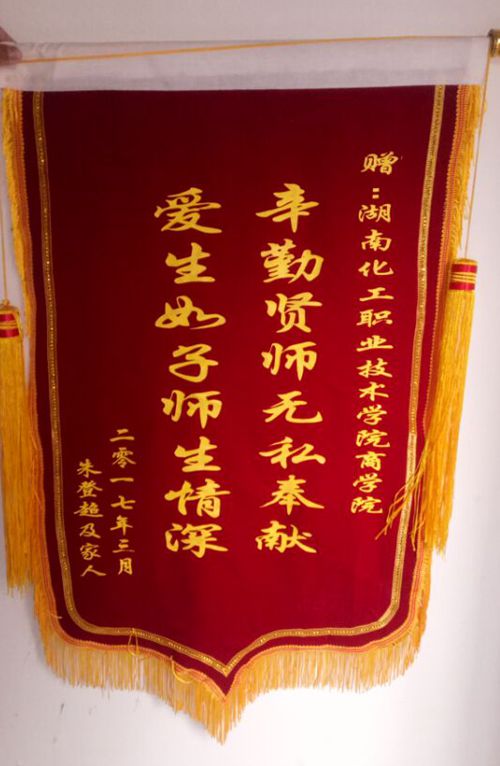 赠：湖南化工职业技术学院商学院
辛勤贤师无私奉献
爱生如子师生情深
二零一七年三月
朱登超及家人